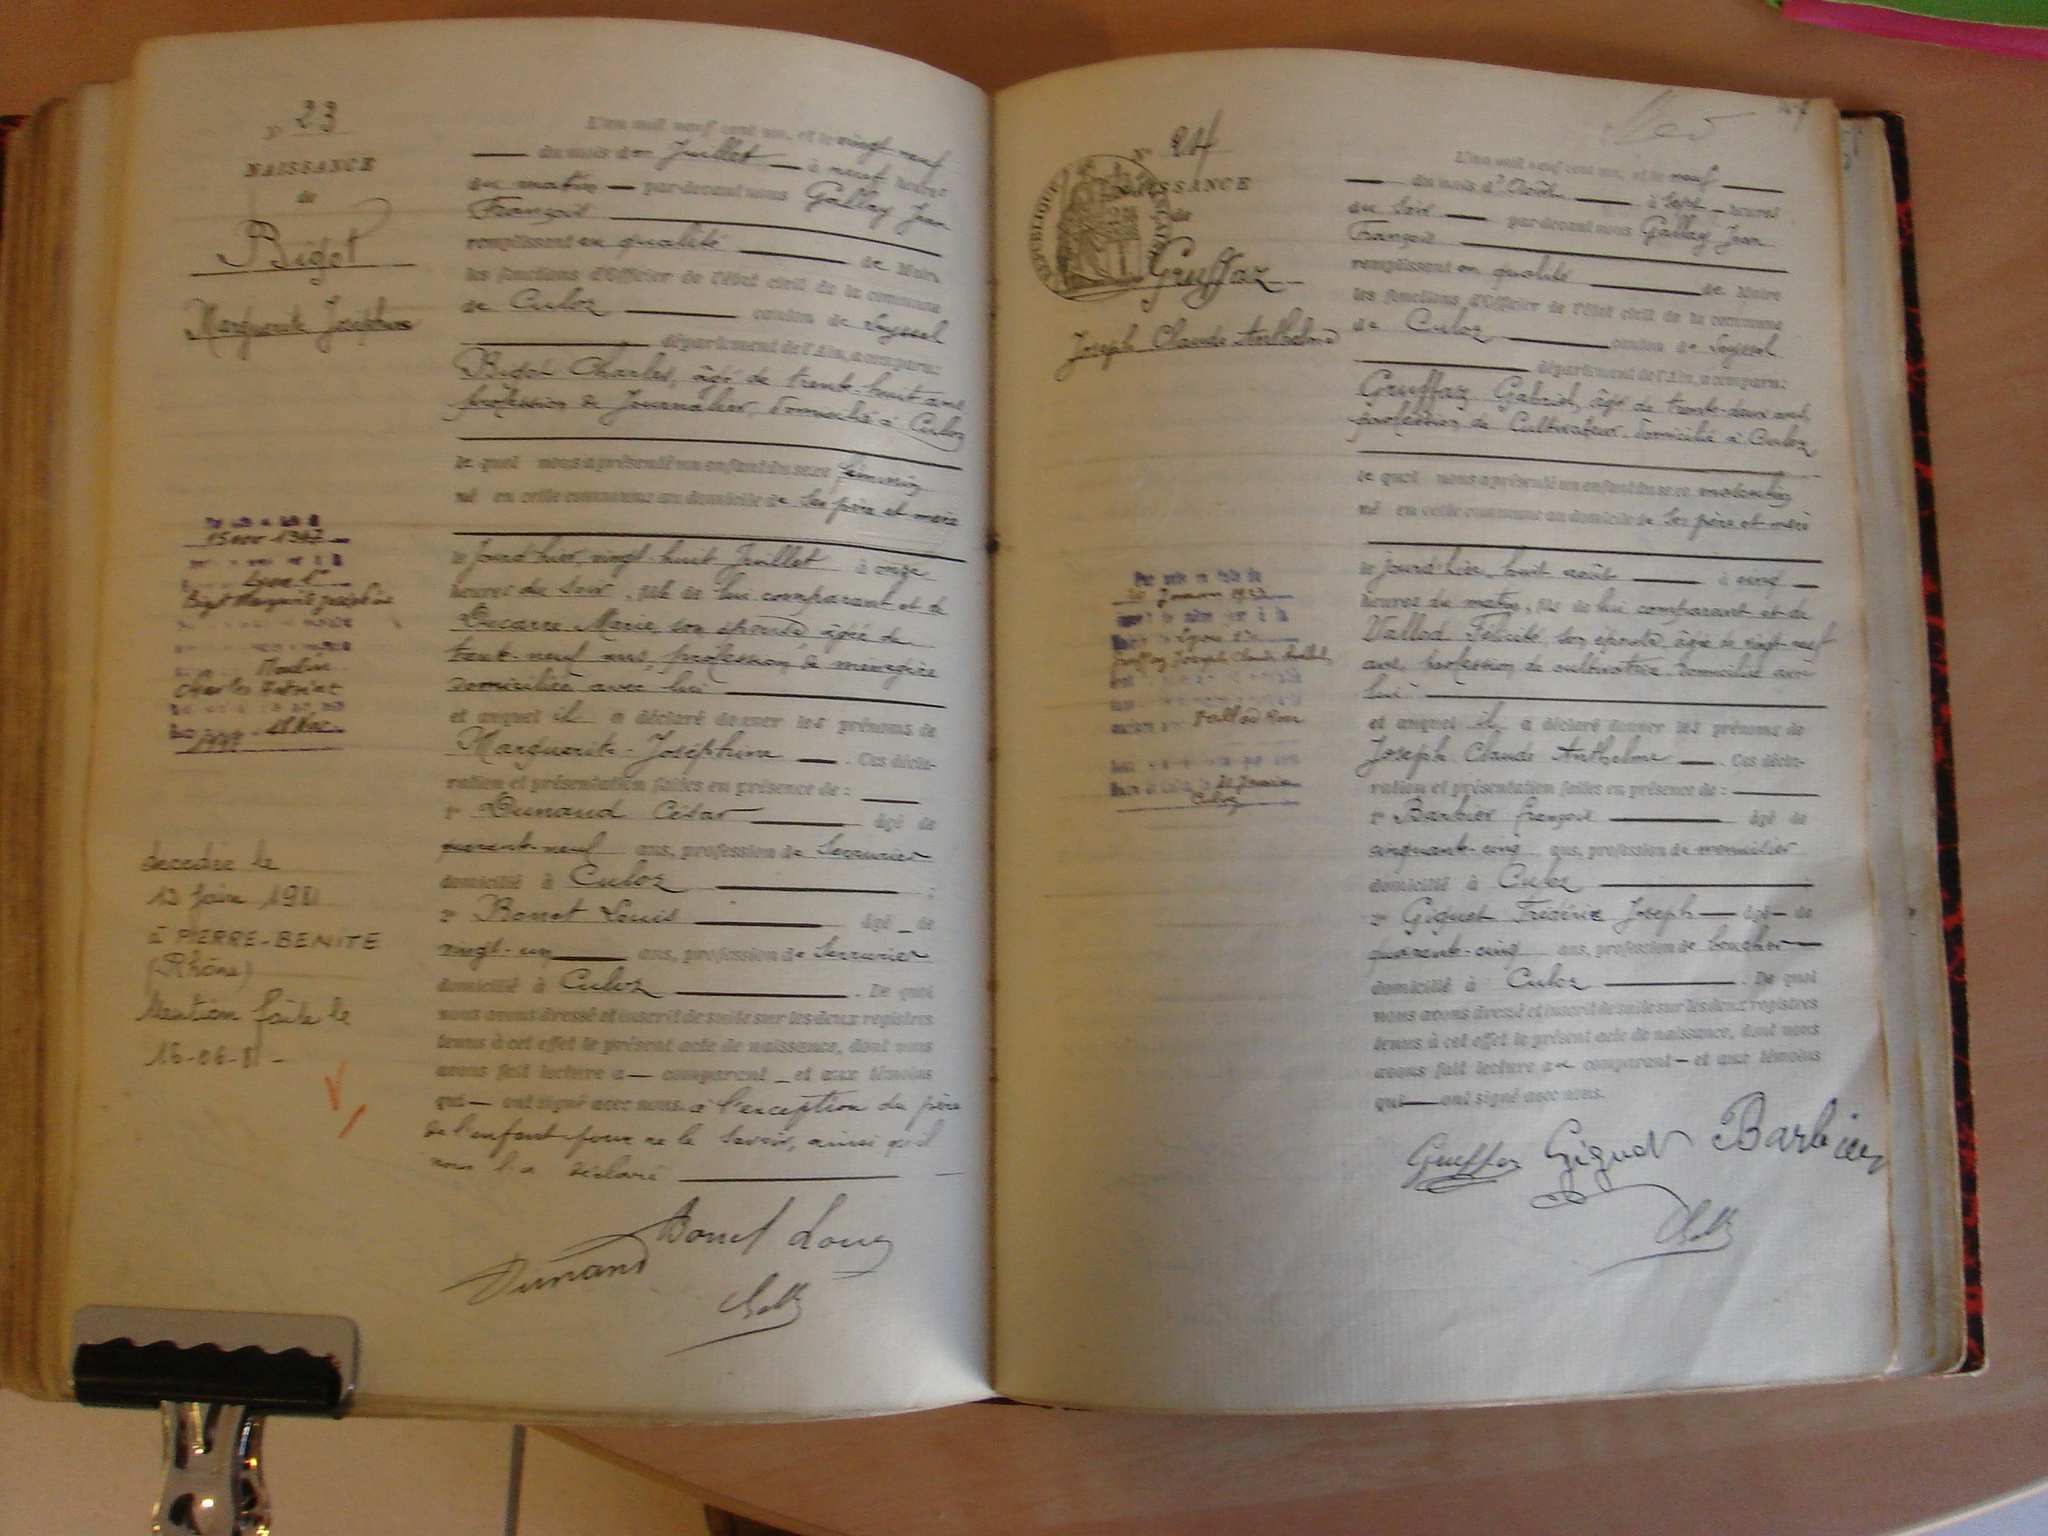 N° 23
NAISSANCE
de
Bigot
Marguerite Joséphine
L'an mil neuf cent un, et le vingt neuf
du mois de Juillet à neuf heures
du matin par-devant nous Gallay Jean
François
remplissant en qualité de Maire
les fonctions d'Officier de l'état civil de la commune
de Culoz canton de Seyssel
département de l'Ain, a comparu:
Bigot Charles, âgé de trente-huit ans,
profession de Journalier, domicilié à Culoz
le quel nous a présenté un enfant du sexe féminin
né en cette commune au domicile de ses père et mère
le jourd'hier, vingt-huit Juillet à onze
heures du soir, fille de lui comparant et de
Ducarre Marie, son épouse, âgée de
trente-neuf ans, profession de ménagère
domiciliée avec lui
et auquel il a déclaré donner les prénoms de
Marguerite-Joséphine. Ces décla-
ration et présentation faites en présence de:
1° Dunand César âgé de
quarante-neuf ans, profession de Serrurier
domicilié à Culoz;
2° Bonet Louis âgé de
vingt-un ans, profession de Serrurier
domicilié à Culoz. De quoi
nous avons dressé et inscrit de suite sur les deux registres
tenus à cet effet le présent acte de naissance, dont nous
avons fait lecture au comparant et aux témoins
qui ont signé avec nous à l'exception du père
de l'enfant pour ne le savoir, ainsi qu'il
nous l'a déclaré
Bonet Louis
Dunand
15 nov 1947
Lyon
Bigot Marguerite Joséphine
Charles Antoine
décédée le
13 juin 1981
à PIERRE-BENITE
(Rhône)
Mention faite le
16-06-81
N° 24
NAISSANCE
de
Gruffaz
Joseph Claude Anthelme
L'an mil neuf cent un, et le neuf
du mois d'Août à sept heures
du soir par-devant nous Gallay Jean
François
remplissant en qualité de Maire
les fonctions d'Officier de l'état civil de la commune
de Culoz canton de Seyssel
département de l'Ain, a comparu:
Gruffaz Gabriel, âgé de trente-deux ans,
profession de Cultivateur, domicilié à Culoz,
le quel nous a présenté un enfant du sexe masculin
né en cette commune au domicile de ses père et mère
le jourd'hier, huit août à cinq
heures du matin, fils de lui comparant et de
Vallod Félicité, son épouse, âgée de vingt-neuf
ans, profession de cultivatrice, domiciliée avec
lui
et auquel il a déclaré donner les prénoms de
Joseph Claude Anthelme. Ces décla-
ration et présentation faites en présence de:
1° Barbier François âgé de
cinquante-cinq ans, profession de menuisier
domicilié à Culoz
2° Giguet Frédéric Joseph âgé de
quarante-cinq ans, profession de boucher
domicilié à Culoz. De quoi
nous avons dressé et inscrit de suite sur les deux registres
tenus à cet effet le présent acte de naissance, dont nous
avons fait lecture au comparant et aux témoins
qui ont signé avec nous.
Gruffaz Giguet Barbier
Lyon
Gruffaz Joseph Claude Anthelme
Culoz